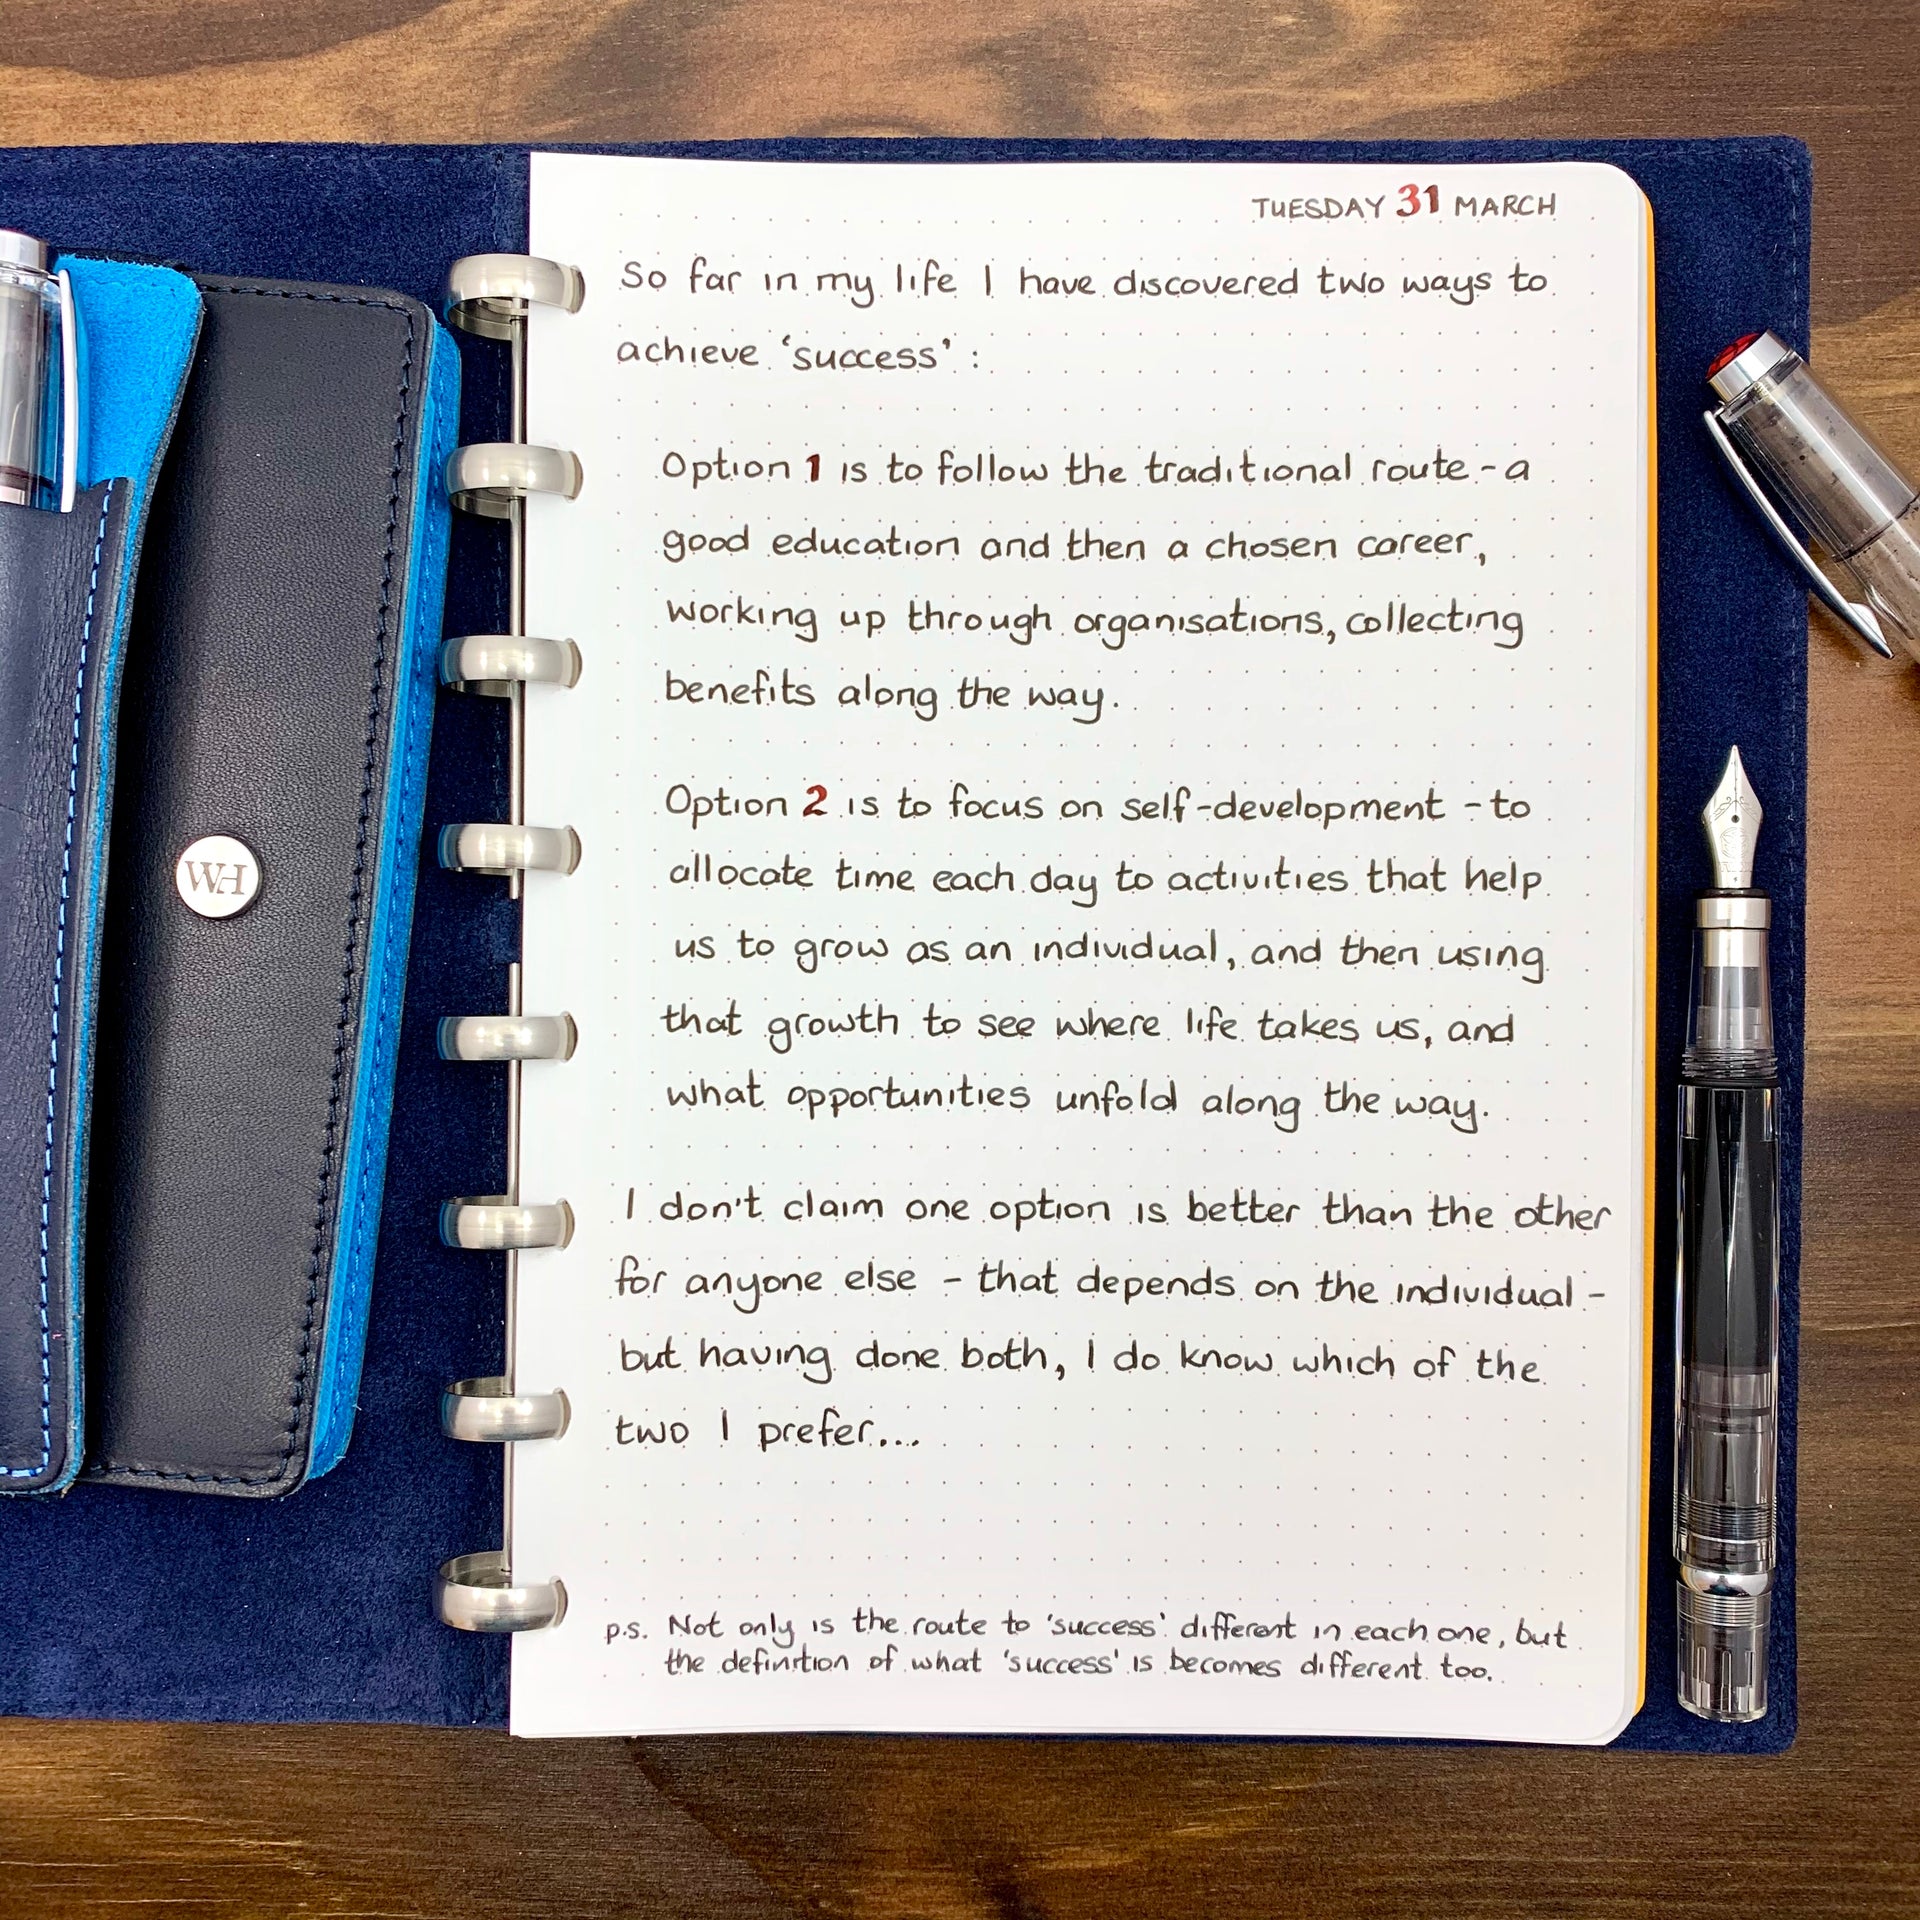 TUESDAY 31 MARCH
So far in my life I have discovered two ways to
achieve 'success':
Option 1 is to follow the traditional route - a
good education and then a chosen career,
working up through organisations, collecting
benefits along the way.
Option 2 is to focus on self-development - to
allocate time each day to activities that help
us to grow as an individual, and then using
that growth to see where life takes us, and
what opportunities unfold along the way.
I don't claim one option is better than the other
for anyone else - that depends on the individual -
but having done both, I do know which of the
two I prefer...
p.s. Not only is the route to 'success' different in each one, but
the definition of what 'success' is becomes different too.
WH